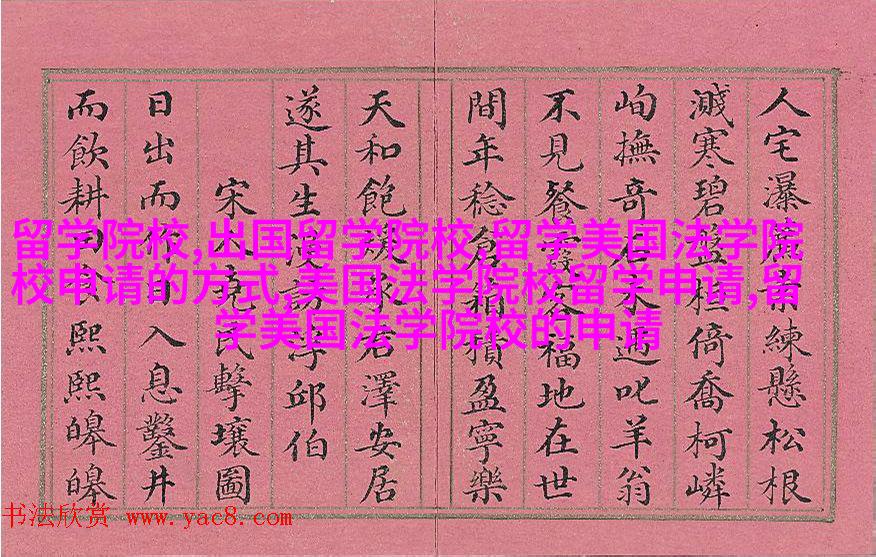 人宅瀑素練懸松根
濺寒碧盤桓倚喬柯嶙
峋撫奇石未遇叱羊翁
不見餐霞客福地在世
間年稔倉箱積盈寧樂
天和飽煖承君澤安居
遂其生漫訪浮邱伯
宋人堯民擊壤圖
日出而作日入息鑿井
而飲耕田食熙熙皞皞
留学院校,出国留学院校,留学美国法学院
校申请的方式,美国法学院校留学申请,留
学美国法学院校的申请
书法欣赏 www.yac8.com